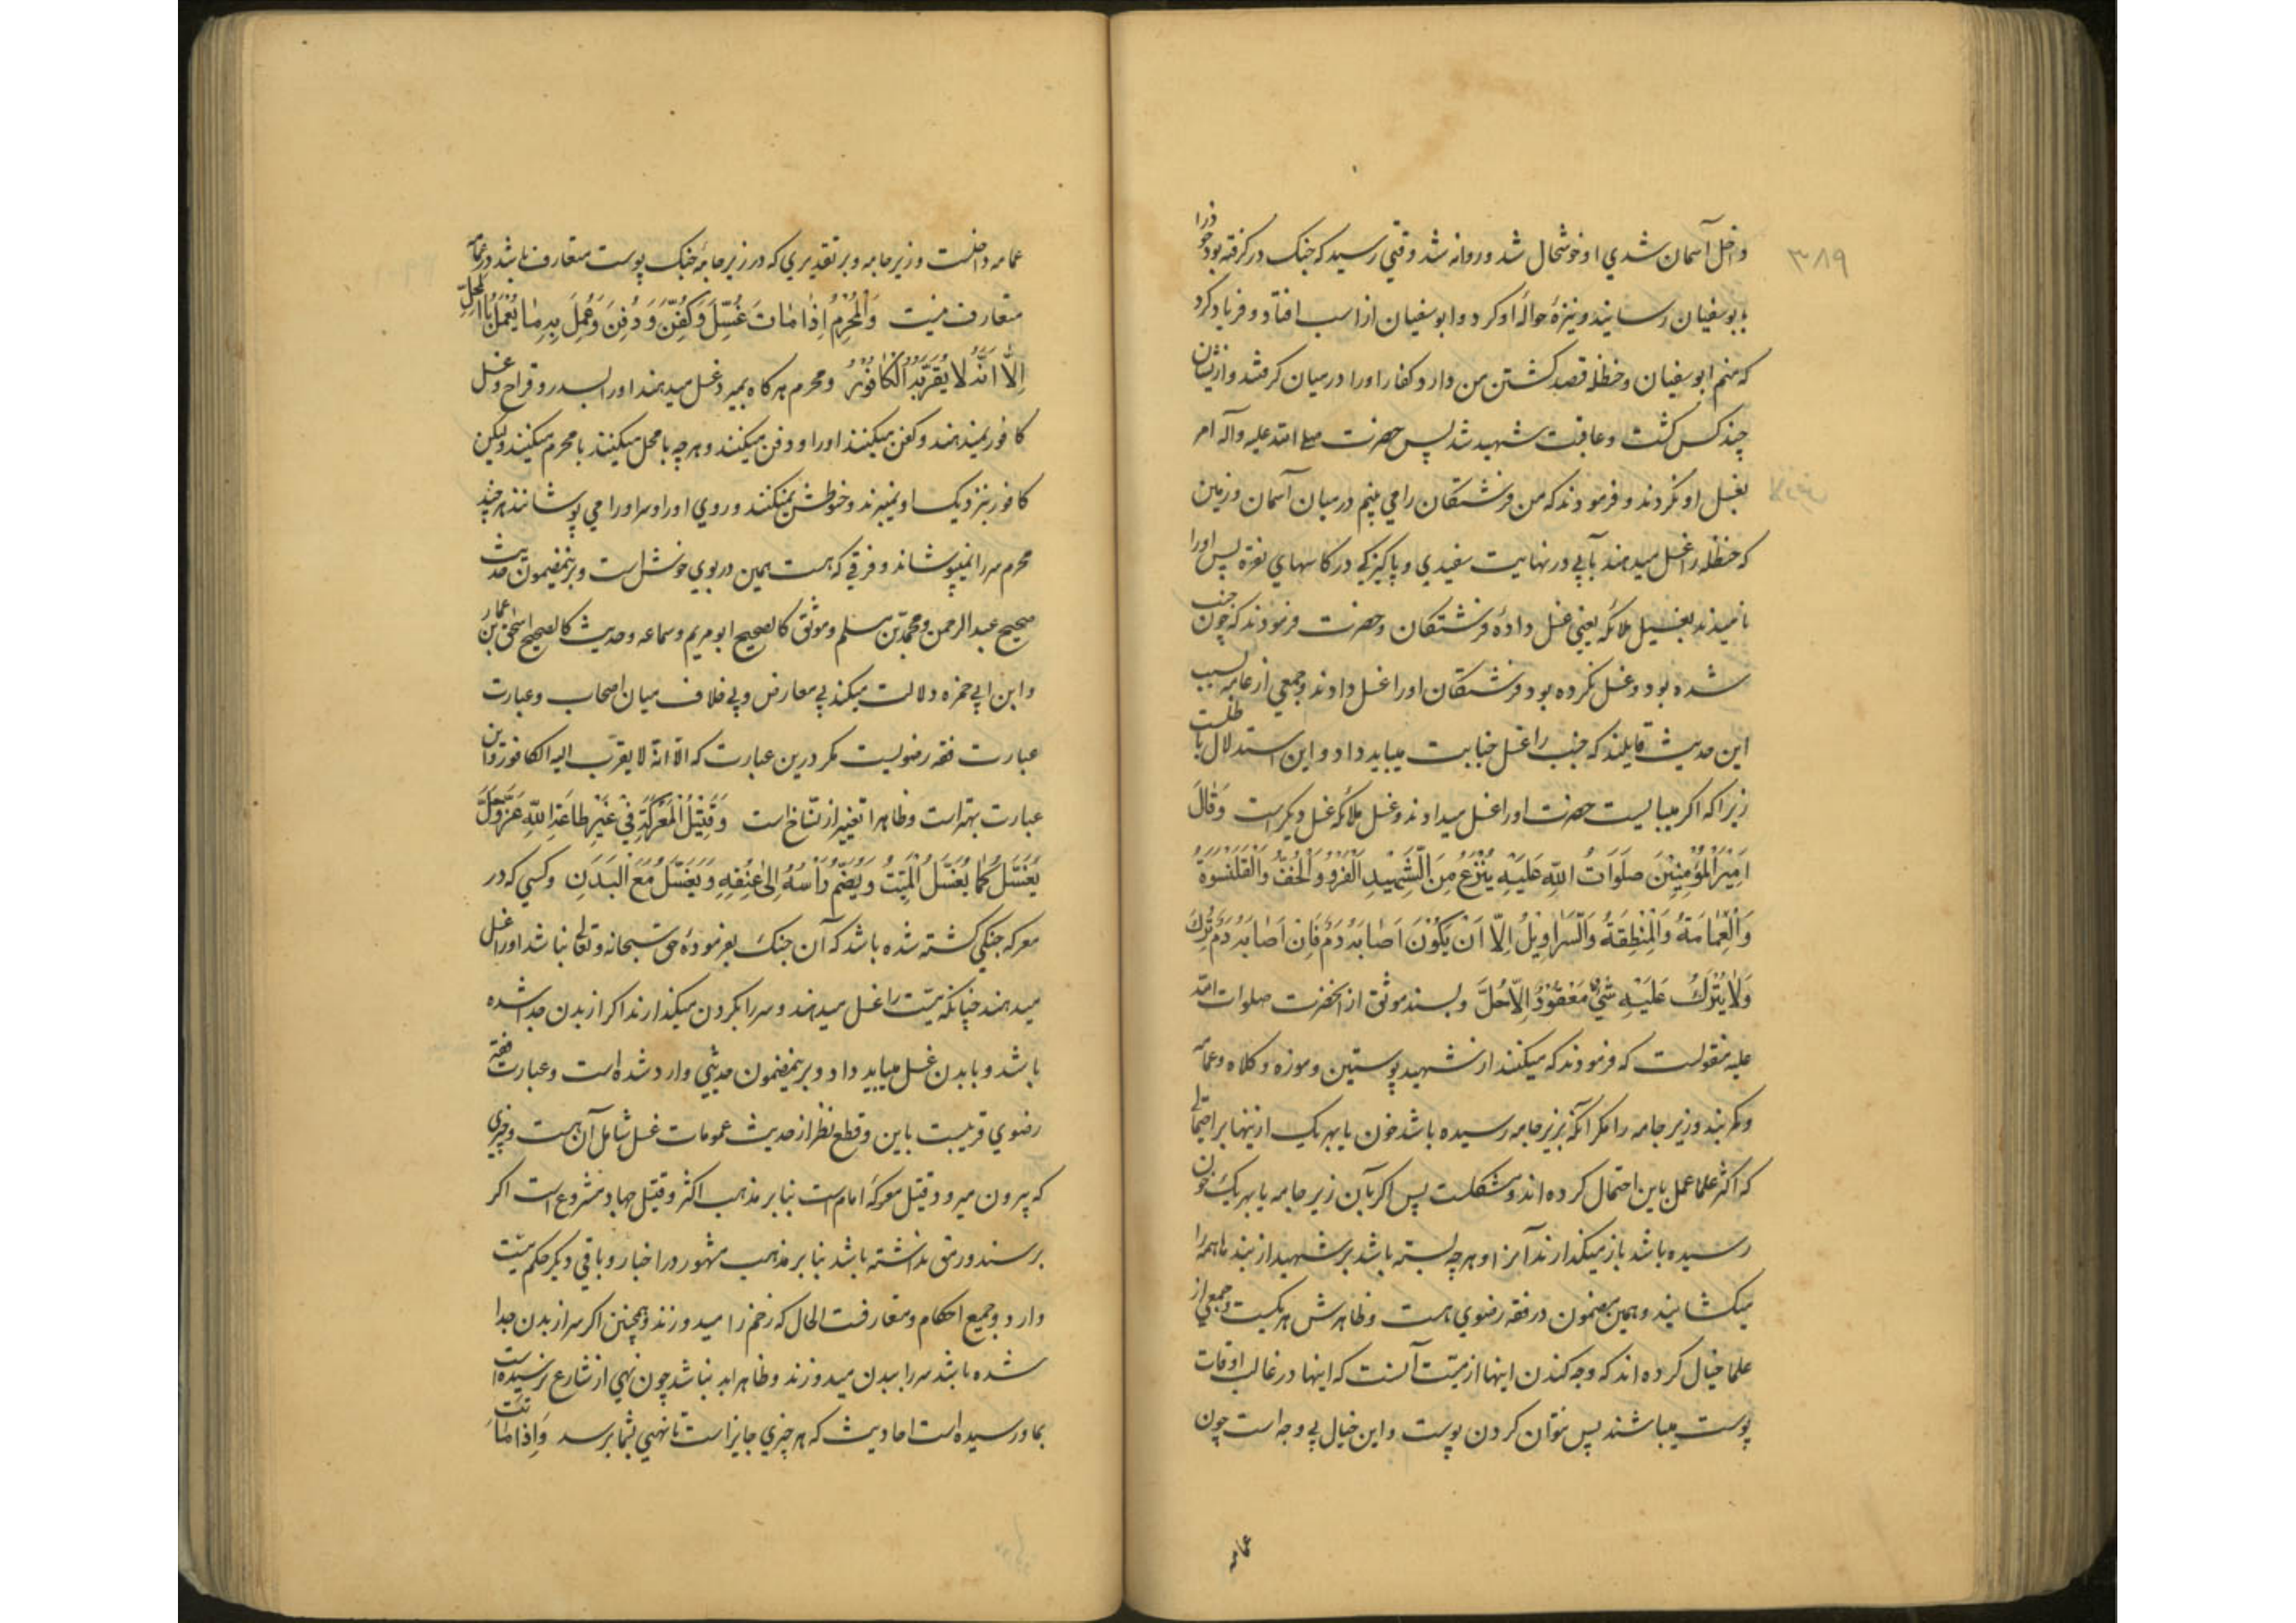 ۳۸۹
داخل آسمان شدی او خوشحال شد و روانه شد وقتی رسید که جنک در کرفته بود خود را
بابوسفیان رسانید و نیزۀ حوالۀ او کرد و ابوسفیان از اسب افتاد و فریاد کرد
که منم ابوسفیان و حنظله قصد کشتن من دارد و کفار او را درمیان کرفتند و ازیشان
چند کس کشت و عاقبت شهید شد پس حضرت صلی الله علیه وآله امر
بغسل او نکردند و فرمودند که من فرشتکان را می بینم درمیان آسمان و زمین
که حنظله را غسل میدهند بآبی در نهایت سفیدی و پاکیزکی در کاسهای نقره پس او را
نامیدند بغسیل ملائکه یعنی غسل دادۀ فرشتکان و حضرت فرمودند که چون جنب
شده بود و غسل نکرده بود فرشتکان او را غسل دادند و جمعی از عامه بسبب
این حدیث قایلند که جنب را غسل جنابت میباید داد و این استدلال باطلست
زیرا که اکر میبایست حضرت او را غسل میدادند و غسل ملائکه غسل دیکر است وَقَالَ
اَمِیرُ الْمُؤْمِنِینَ صَلَوَاتُ اللّهِ عَلَیْهِ یُنْزَعُ مِنَ الشَّهِیدِ الْفَرْوُ وَالْخُفُّ وَالْقَلَنْسُوَةُ
وَالْعِمَامَةُ وَالْمِنْطَقَةُ وَالسَّرَاوِیلُ اِلّا اَنْ یَکُونَ اَصَابَهُ دَمٌ فَاِنْ اَصَابَهُ دَمٌ تُرِکَ
وَلَا یُتْرَکُ عَلَیْهِ شَیْءٌ مَعْقُودٌ اِلّا حُلَّ و بسند موثق از آنحضرت صلوات الله
علیه منقولست که فرمودند که میکنند از شهید پوستین و موزه و کلاه و عمامه
و کمربند و زیر جامه را مکر آنکه بزیر جامه رسیده باشد خون یا بهریک ازینها بر احتمالی
که اکثر علما عمل باین احتمال کرده اند و مشکلست پس اکر بآن زیر جامه یا بهریک خون
رسیده باشد باز میکذارند آنرا و هرچه بسته باشد بر شهید از بندها همه را
میکشایند و همین مضمون در فقه رضوی هست و ظاهرش هریکیست و جمعی از
علما خیال کرده اند که وجه کندن اینها از میّت آنست که اینها در غالب اوقات
پوست میباشند پس نتوان کردن پوست و این خیال بی وجه است چون
عمامه
عمامه داخلست و زیر جامه و بر تقدیری که در زیر جامۀ جنک پوست متعارف باشد در عمامه
متعارف نیست وَالْمُحْرِمُ اِذَا مَاتَ غُسِّلَ وَکُفِّنَ وَدُفِنَ وَعُمِلَ بِهِ مَا یُعْمَلُ بِالْمُحِلِّ
اِلّا اَنَّهُ لَا یُقَرَّبُهُ الْکَافُورُ و محرم هرکاه بمیرد غسل میدهند او را بسدر و قراح و غسل
کافور نمیدهند و کفن میکنند او را و دفن میکنند و هرچه با محل میکنند با محرم میکنند ولیکن
کافور بنزدیک او نمیبرند و حنوطش نمیکنند و روی او را و سر او را می پوشانند هرچند
محرم سر را نمیپوشاند و فرقی که هست همین در بوی خوش است و برینمضمون حدیث
صحیح عبدالرحمن و محمّد بن مسلم و موثق کالصحیح ابو مریم و سماعه و حدیث کالصحیح اسحق بن عمار
و ابن ابی حمزه دلالت میکند بی معارض و بی خلاف میان اصحاب و عبارت
عبارت فقه رضویست مکر درین عبارت که الّا انّه لا یقرّب الیه الکافور و این
عبارت بهتر است و ظاهرا تغییر از نسّاخ است وَقَتِیلُ الْمَعْرَکَةِ فِی غَیْرِ طَاعَةِ اللّهِ عَزَّ وَجَلَّ
یُغَسَّلُ کَمَا یُغَسَّلُ الْمَیِّتُ وَیُضَمُّ رَأْسُهُ اِلَی عُنُقِهِ وَیُغَسَّلُ مَعَ الْبَدَنِ و کسی که در
معرکه جنکی کشته شده باشد که آن جنک بفرمودۀ حق سبحانه و تعالی نباشد او را غسل
میدهند چنانکه میّت را غسل میدهند و سر را بکردن میکذارند اکر از بدن جدا شده
باشد و با بدن غسل میباید داد و برینمضمون حدیثی وارد شده است و عبارت فقه
رضوی قریبست باین و قطع نظر از حدیث عمومات غسل شامل آن هست و چیزی
که بیرون میرود قتیل معرکۀ امام است بنا بر مذهب اکثر و قتیل جهاد مشروع است اکر
برسند و رمق نداشته باشد بنا بر مذهب مشهور در اخبار و باقی دیکر حکم میّت
دارد و جمیع احکام و متعارفست الحال که زخم را میدوزند و همچنین اکر سر از بدن جدا
شده باشد سر را ببدن میدوزند و ظاهرا بد نباشد چون نهی از شارع نرسیده است
بما و رسیده است احادیث که هر چیزی جایز است تا نهیی بشما برسد وَاِذَا مَاتَتْ